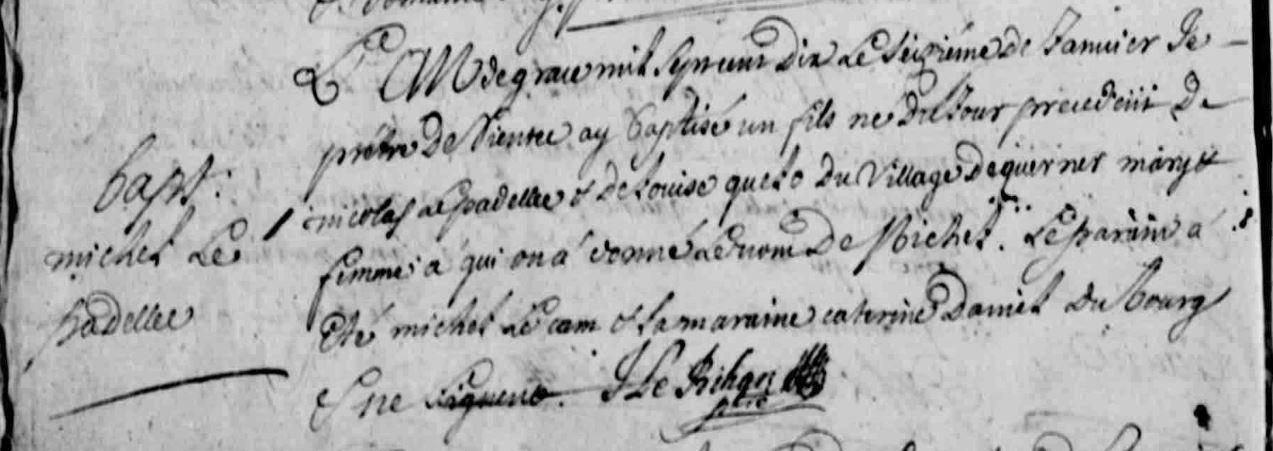 bapt:
michel Le
padellec
L'An de grace mil sept cent dix Le seizième de Janvier Je
prêtre De ay baptisé un fils né du Jour precedent De
nicolas Le padellec & de Louise queLo Du Village De quernet mary &
femme a qui on a donné Le nom De Michel. Le parain a
été michel Le cam & La maraine caterine Daniel du bourg
& ne signent. J Le Rihan ptre